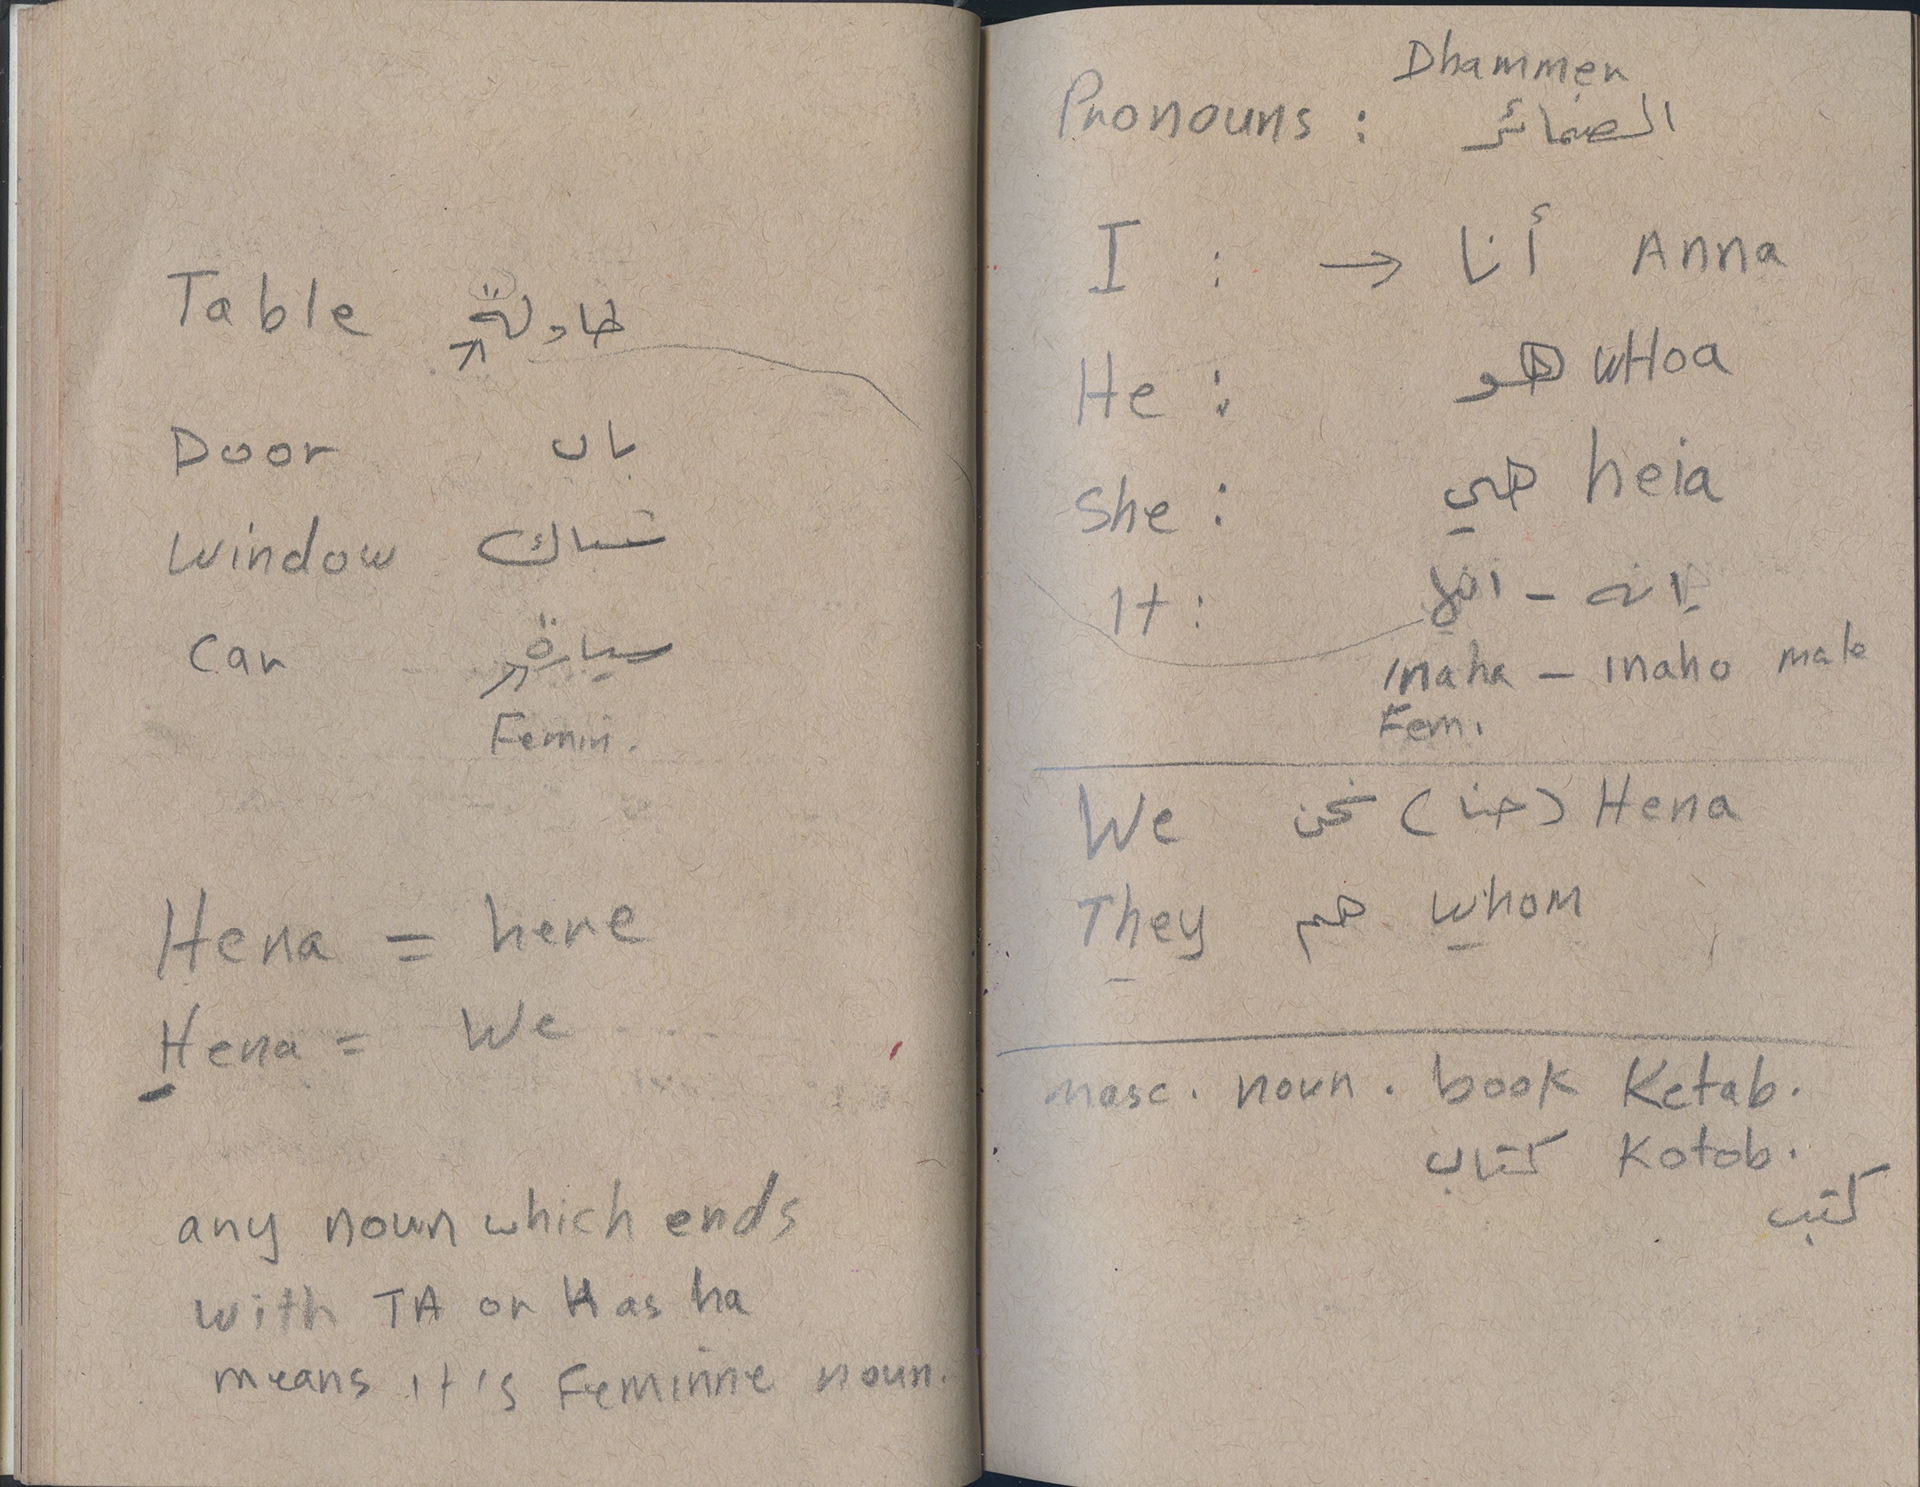 Table طاولة
Door باب
Window شباك
Car سيارة
Femin.
Hena = here
Hena = We
any noun which ends
with TA or H as ha
means it's Feminine noun.
Dhammer
Pronouns : الضمائر
I : → أنا Anna
He : هو wHoa
She : هي heia
It : انه - انها
Inaha - Inaho male
Fem.
We نحن (حنا) Hena
They هم whom
masc. noun. book Ketab.
كتاب Kotob.
كتب